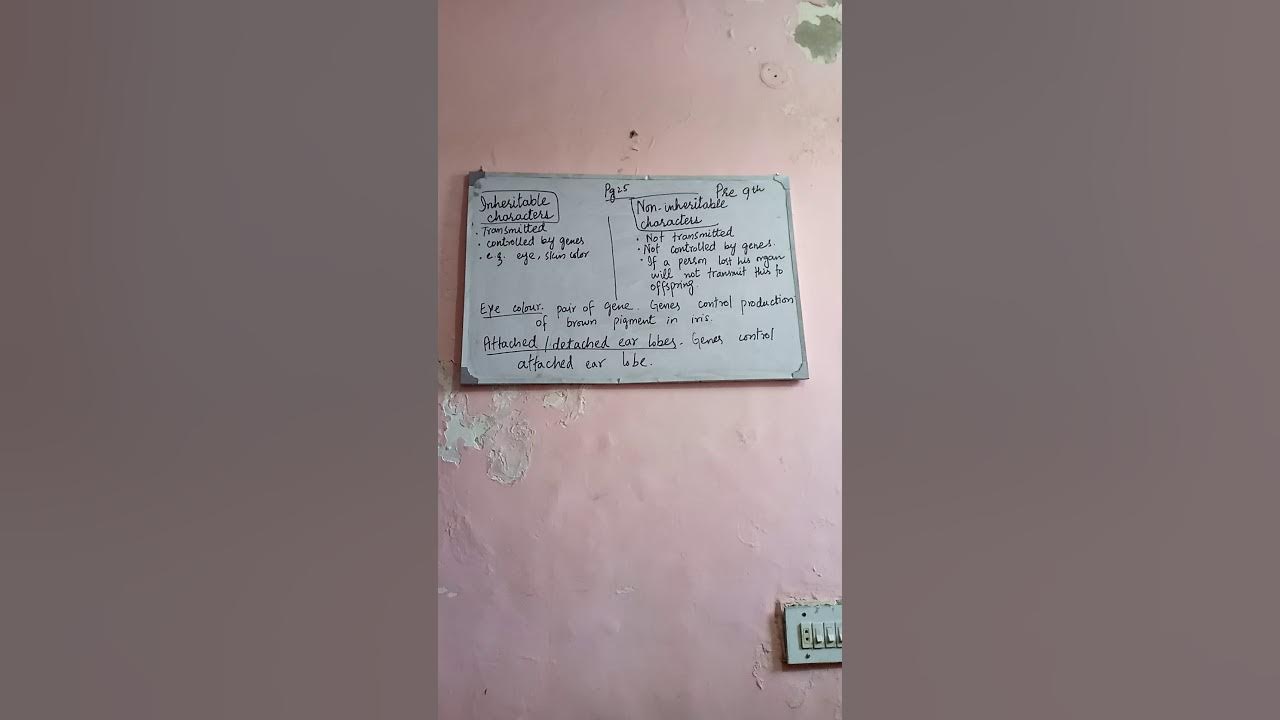 Pg 25
Pre 9th
Inheritable
characters
. Transmitted
. controlled by genes
. e.g. eye, skin color
Non-inheritable
characters
. Not transmitted
. Not controlled by genes.
. If a person lost his organ
will not transmit this to
offspring.
Eye colour. pair of gene. Genes control production
of brown pigment in iris.
Attached / detached ear lobes. Genes control
attached ear lobe.